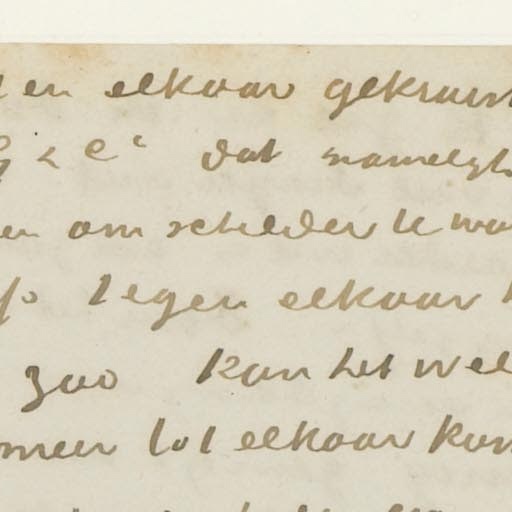 en elkaar gekruis
dat namelyk
en om schilder te wo
tegen elkaar
zoo kan het wel
meer tot elkaar kun